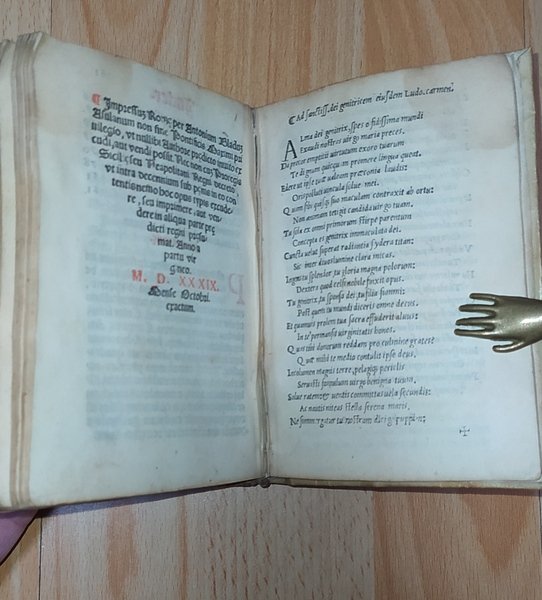 ¶ Impressuz Rome per Antonium Bladoz
Asulanum non sine Pontificis Maximi pri
uilegio, vt nullus Authore predicto inuito ex
cudi, aut vendi possit. Nec non cuz Priuilegio
Sicil. seu Neapolitani Regni decreto
vt intra decennium sub pena in eo con
tentionemo hoc opus typis excude
re, seu imprimere, aut ven
dere in aliqua parte pre
dicti regni presu
mat. Anno a
partu vir
gineo.
M. D. XXXIX.
Mense Octobri.
exactum.
¶ Ad sanctiss. dei genitricem eiusdem Ludo. carmen.
ALma dei genitrix, spes o fidissima mundi
Exaudi nostras uirgo maria preces.
Da precor empticii uirtutum exoro tuarum
Te dignum quicquam promere lingua queat.
Edere ut ipse tuae ualeam praeconia laudis:
Os
Quam sibi quaeque suo maculam contraxit ab ortu:
Non animam tetigit candida uirgo tuam.
Tu sola ex omni primorum stirpe parentum
Concepta es genitrix immaculata dei.
Cuncta uelut superat radiantia sydera titan:
Sic inter diuas lumine clara micas.
Ingens tu splendor, tu gloria magna polorum:
Dextera quod celsi nobile finxit opus.
Tu genitrix, tu sponsa dei, tu filia summi:
Post quem tu mundi diceris omne decus.
Et quamuis prolem tua sacra effuderit aluus:
In te permansit uirginitatis honos.
Quas tibi donorum reddam pro culmine grates?
Quae mihi te medio contulit ipse deus.
Incolumem magnis terrae, pelagique periclis
Seruasti famulum uirgo benigna tuum.
Saluae ratem uentis committas uela secundis:
Ac nautis niteas stella serena maris.
Ne summergatur tu nostram dirige puppim: